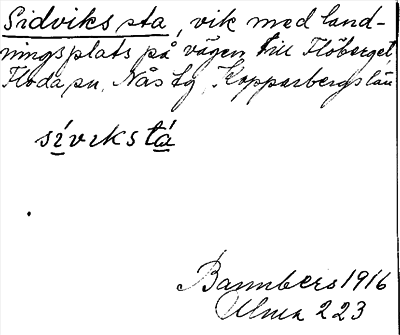 Sidviks sta, vik med land-
ningsplats på vägen till Flöberget,
Floda sn, Nås tg Kopparbergs län
sívıks tá
Bannbers 1916
Ulma 223